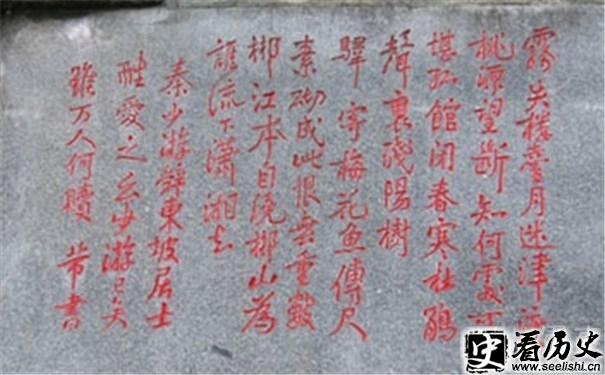 霧失樓臺月迷津渡
桃源望斷知何處可
堪孤館閉春寒杜鵑
聲裏殘陽樹
驛寄梅花魚傳尺
素砌成此恨無重數
郴江本自繞郴山為
誰流下瀟湘去
秦少游辭東坡居士
酷愛之云少游已矣
雖万人何贖 芾書
史 看历史
www.seelishi.cn